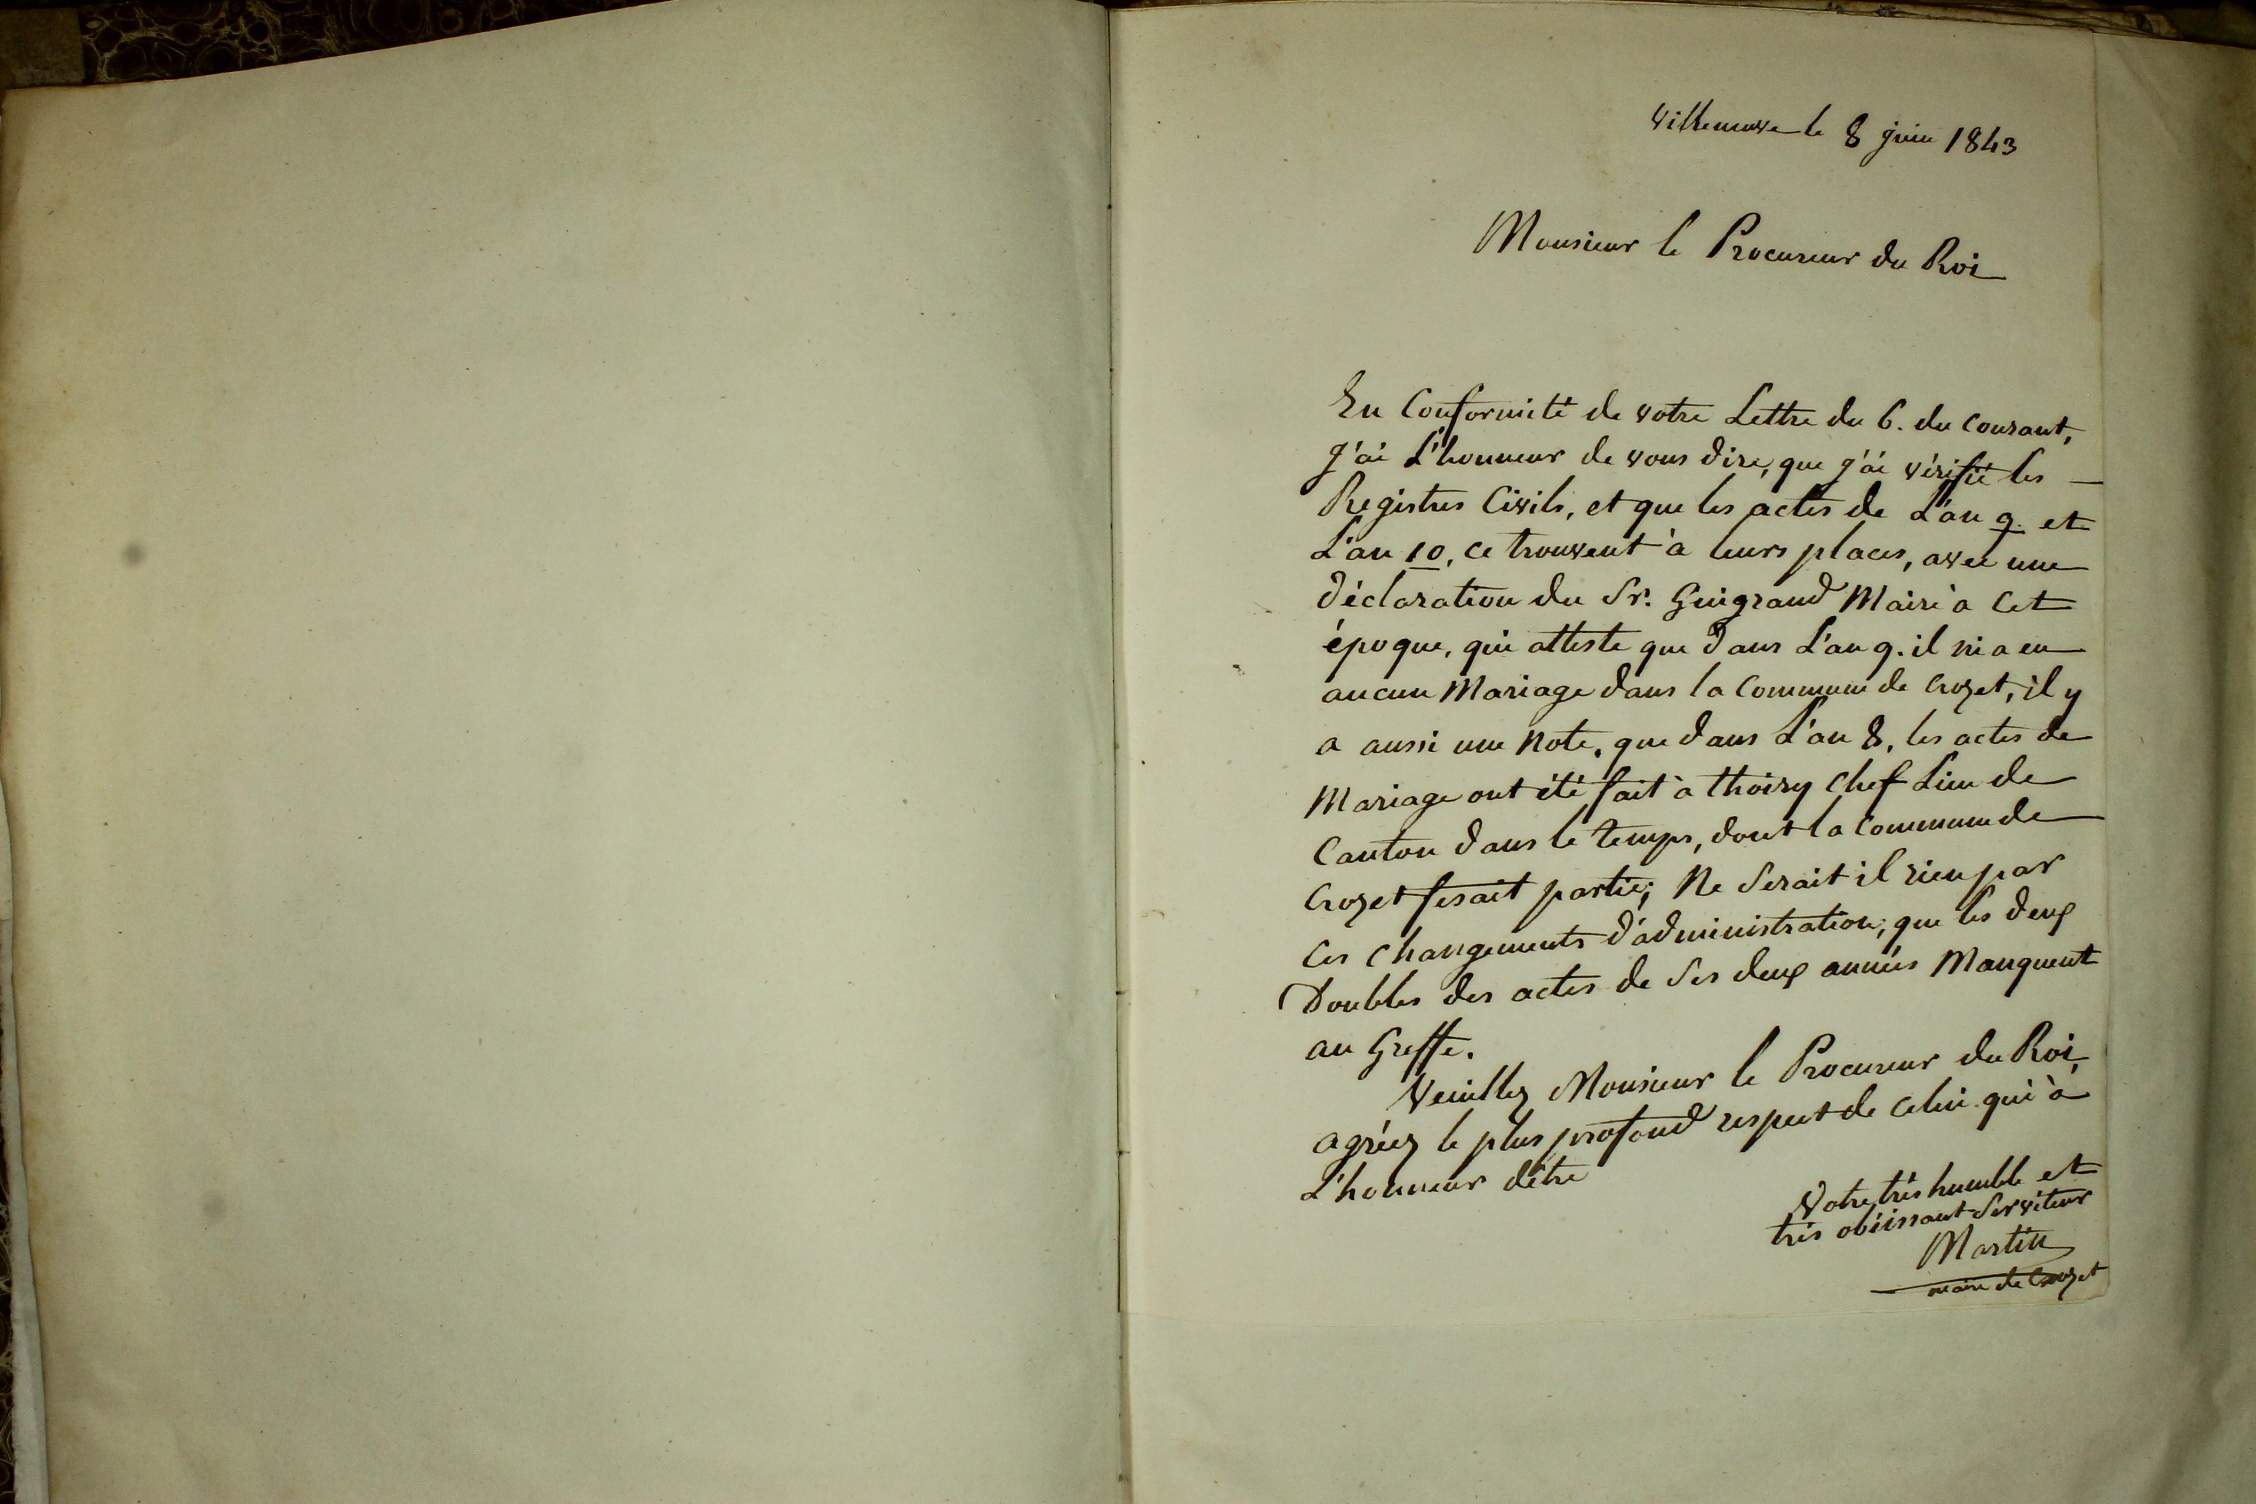 Villeneuve le 8 juin 1843
Monsieur le Procureur du Roi
En Conformité de votre Lettre du 6. du courant,
j'ai L'honneur de vous dire, que j'ai vérifié les —
Registres Civils, et que les actes de L'an 9. et
L'an 10, ce trouvent à leurs places, avec une
déclaration du Sr. Guigrand Maire à Cet
époque, qui atteste que dans L'an 9. il ni a eu
aucun Mariage dans la Commune de Crozet, il y
a aussi une Note, que dans L'an 8, les actes de
Mariage ont été fait à Thoiry Chef Lieu de
Canton dans le temps, dont la Commune de
Crozet fesait partie; Ne Serait il rien par
Ces Changements d'administration, que les deux
Doubles des actes de Ses deux années Manquent
au Greffe.
Veuillez Monsieur le Procureur du Roi,
agréez le plus profond respect de celui qui à
L'honneur d'être
Votre très humble et
très obéissant Serviteur
Martin
maire de Crozet